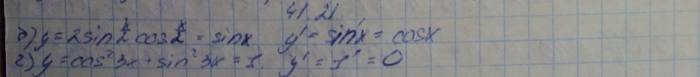 41.21
в) y = 2sin x/2 cos x/2 = sinx y' = sin'x = cosx
г) y = cos² 3x + sin² 3x = 1 y' = 1' = 0